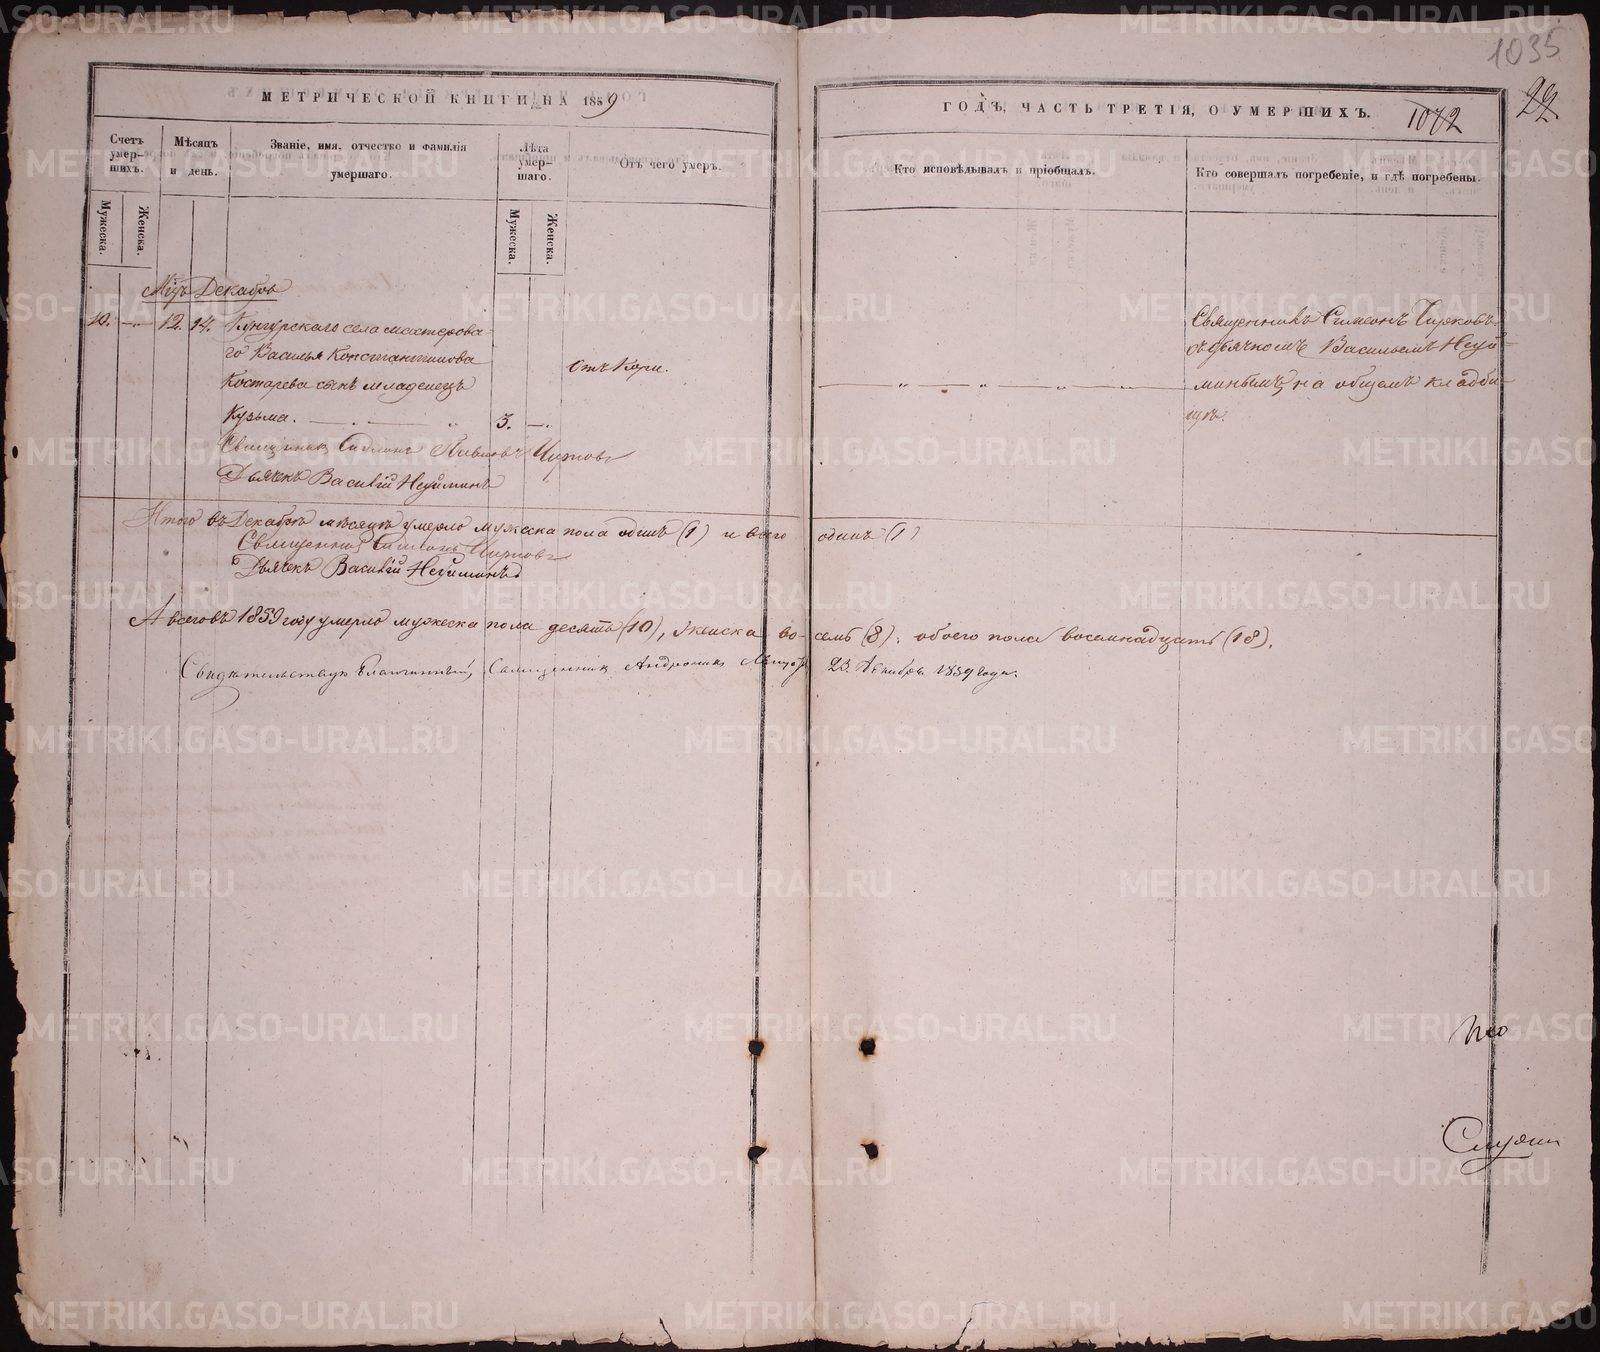 1035
22
МЕТРИЧЕСКОЙ КНИГИ НА 1859
ГОДЪ, ЧАСТЬ ТРЕТІЯ, О УМЕРШИХЪ.
1072
Счетъ умер-шихъ.
Мужеска.
Женска.
Мѣсяцъ и день.
Званіе, имя, отчество и фамилія умершаго.
Лѣта умер-шаго.
Мужеска.
Женска.
Отъ чего умеръ.
Кто исповѣдывалъ и пріобщалъ.
Кто совершалъ погребеніе, и гдѣ погребены.
Мцъ Декабрь
10. — 12. 14. Кунгурскаго села мастерова-
го Василья Константинова
Костарева сынъ младенецъ
Кузьма. 3.
отъ Кори.
Священникъ Симеонъ Чирковъ
съ дьячкомъ Васильемъ Неуй-
минымъ, на общемъ кладби-
щѣ.
Священникъ Симеонъ Чирковъ
Дьячекъ Василій Неуйминъ
Итого въ Декабрѣ мѣсяцѣ умерло мужеска пола одинъ (1) и всего одинъ (1)
Священникъ Симеонъ Чирковъ
Дьячекъ Василій Неуйминъ
А всего въ 1859 году умерло мужеска пола десять (10), женска во-семь (8). обоего пола восемнадцать (18).
Свидѣтельствую Благочинный, Священникъ Андроникъ 23. Декабря 1859 года.
по